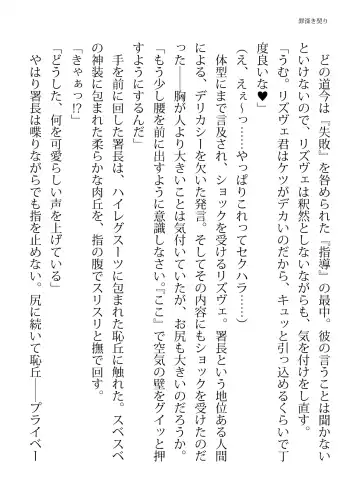 罪滌き契り
どの道今は『失敗』を咎められた『指導』の最中。彼の言うことは聞かない
といけないので、リズヴェは釈然としないながらも、気を付けをし直す。
「うむ。リズヴェ君はケツがデカいのだから、キュッと引っ込めるくらいで丁
度良いな♥」
(え、えぇ〜っ……やっぱりこれってセクハラ……)
体型にまで言及され、ショックを受けるリズヴェ。署長という地位ある人間
による、デリカシーを欠いた発言。そしてその内容にもショックを受けたのだ
った――胸が人より大きいことは気付いていたが、お尻も大きいのだろうか。
「もう少し腰を前に出すように意識しなさい。『ここ』で空気の壁をグイッと押
すようにするんだ」
手を前に回した署長は、ハイレグスーツに包まれた恥丘に触れた。スベスベ
の神装に包まれた柔らかな肉丘を、指の腹でスリスリと撫で回す。
「きゃぁっ!?」
「どうした、何を可愛らしい声を上げている」
やはり署長は喋りながらでも指を止めない。尻に続いて恥丘――プライベー